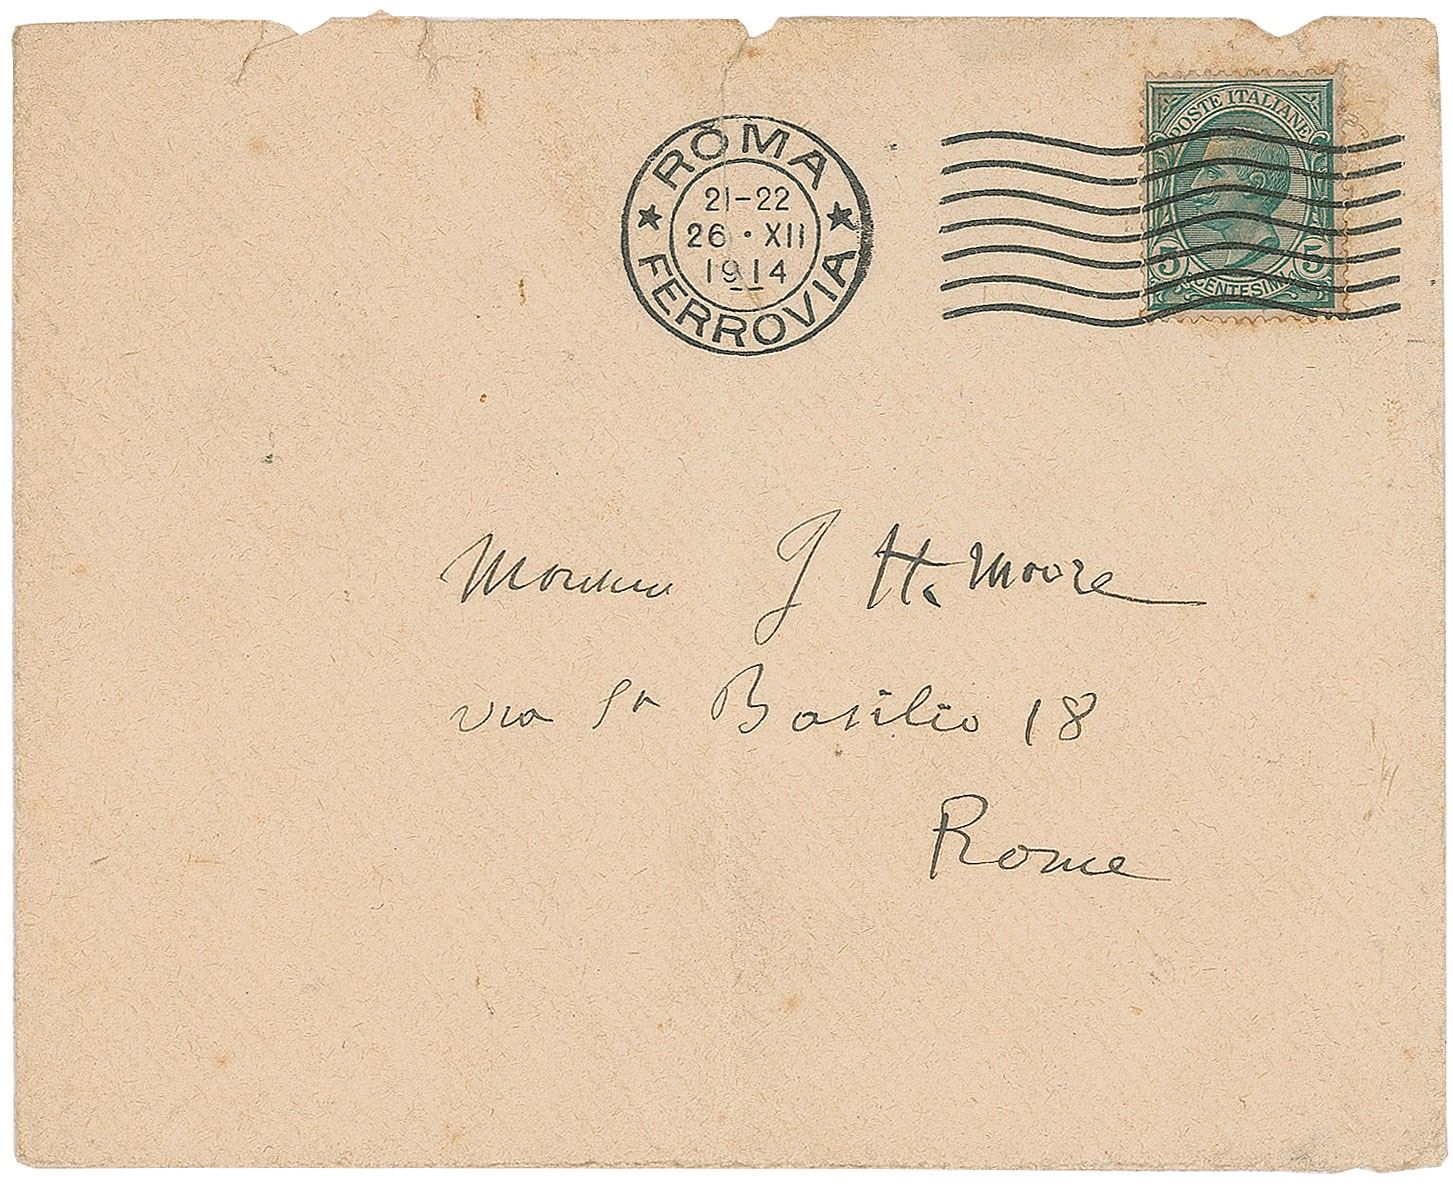 ROMA
21-22
26 · XII
1914
FERROVIA
POSTE ITALIANE
5 5
CENTESIMI
Monsieur J H. Moore
via Sn Basilio 18
Rome